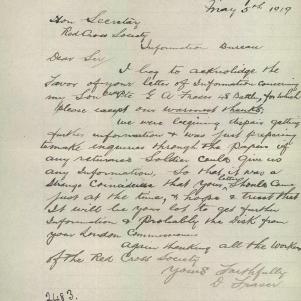 May 5th 1919
Hon Secretary
Red Cross Society
Information Bureau
Dear Sir
I beg to acknolidge the
favor of your letter of Information concerning
my Son E A Fraser 18 Battln, for which
please except our warmest thanks;
We were begining dispair getting
further information & was just prepairing
to make enquiries through the Papers if
any returned Soldier could give us
any Information. So that it was a
Strange Coinsidence that yours letter Should Came
just at the time, & hope & trust that
It will be your lot to get further
Information & Probably the Disk from
your London Commissioner
Again thanking all the Workers
of the Red Cross Society
Yours Faithfully
D Fraser
2483.